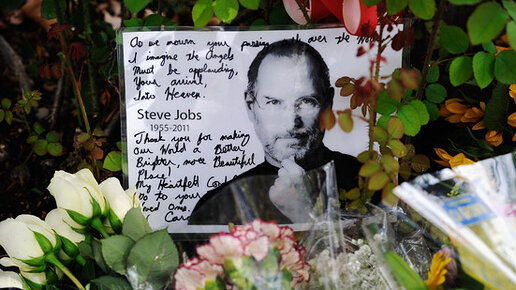 As we mourn your passing all over the world
I imagine the Angels
Must be applauding,
Your arrival,
Into Heaven.
Steve Jobs
1955-2011
Thank you for making
Our World a Better
Brighter, more Beautiful
Place!
My Heartfelt
to your
Loved One.